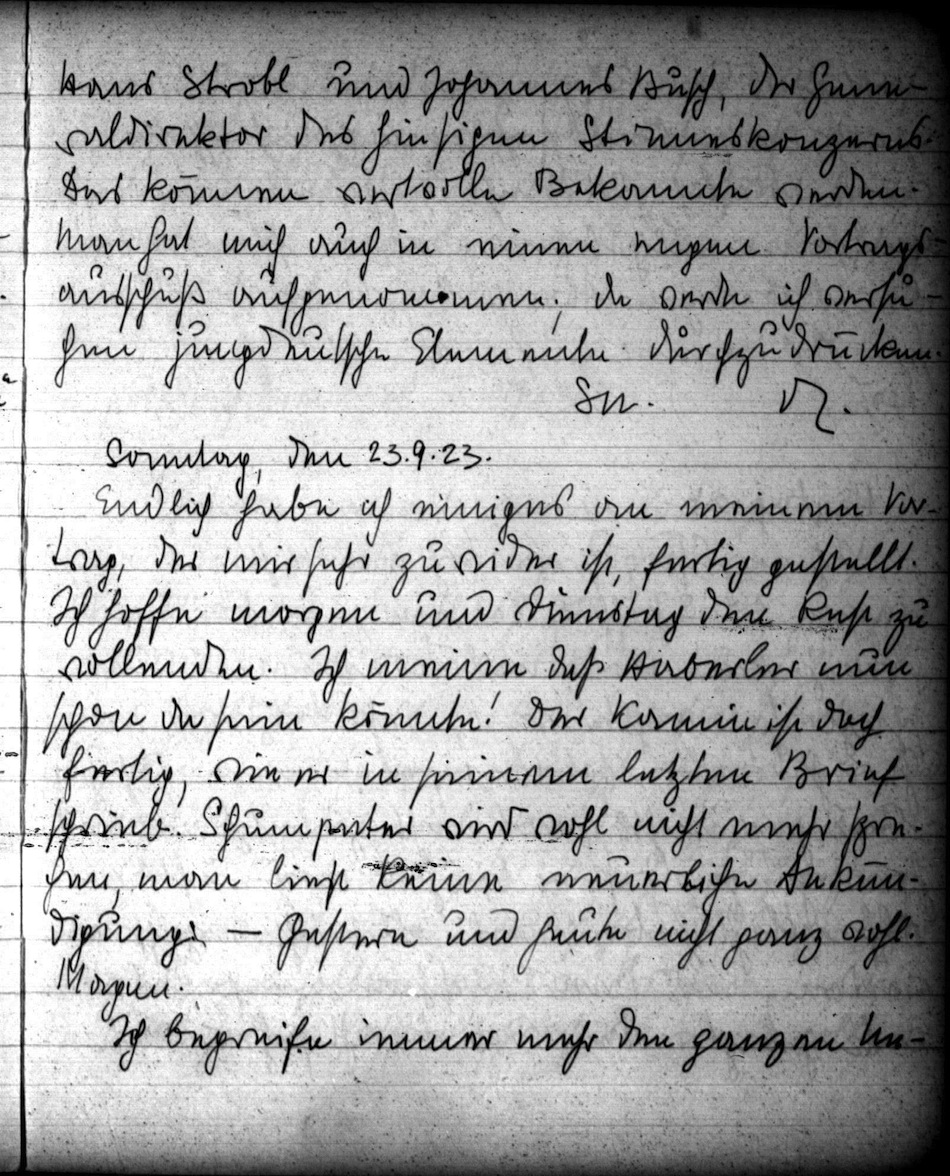 Hans Strobl und Johannes Busch, der Gene-
raldirektor des hiesigen Stinneskonzerns.
Das können wertvolle Bekannte werden.
Man hat mich auch in einen engen Vortrags-
ausschuß aufgenommen; da werde ich versu-
chen jungdeutsche Elemente durchzudrücken.
Sonntag, den 23.9.23.
Endlich habe ich einiges an meinem Vor-
trag, der mir sehr zuwider ist, fertig gestellt.
Ich hoffe morgen und Dienstag den Rest zu
vollenden. Ich meine daß Haberler nun
schon da sein könnte! Der Kamin ist doch
fertig, wie er in seinem letzten Brief
schrieb. Schumpeter wird wohl nicht mehr spre-
chen, man liest keine neuerliche Ankün-
digung. — Gestern und heute nicht ganz wohl.
Magen.
Ich begreife immer mehr den ganzen Un-